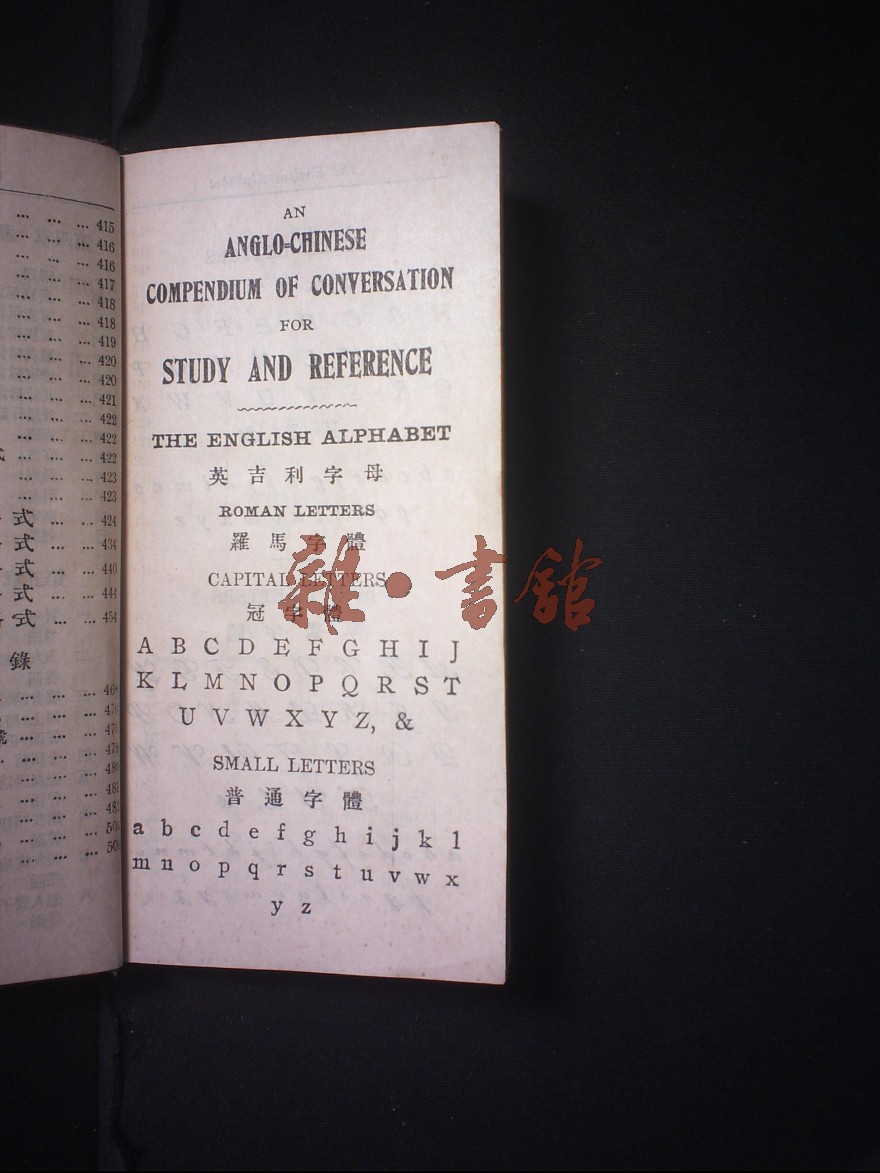 ... ... ... 415
... ... ... 416
... ... ... 416
... ... ... 417
... ... ... 418
... ... ... 418
... ... ... 419
... ... ... 420
... ... ... 420
... ... ... 421
... ... ... 422
... ... ... 422
式 ... ... ... 422
... ... ... 423
... ... ... 423
式 ... ... 424
式 ... ... 434
式 ... ... 440
式 ... ... 444
式 ... ... 454
錄
AN
ANGLO=CHINESE
COMPENDIUM OF CONVERSATION
FOR
STUDY AND REFERENCE
THE ENGLISH ALPHABET
英吉利字母
ROMAN LETTERS
羅馬字體
CAPITAL LETTERS
冠字體
A B C D E F G H I J
K L M N O P Q R S T
U V W X Y Z, &
SMALL LETTERS
普通字體
a b c d e f g h i j k l
m n o p q r s t u v w x
y z
雜·書館